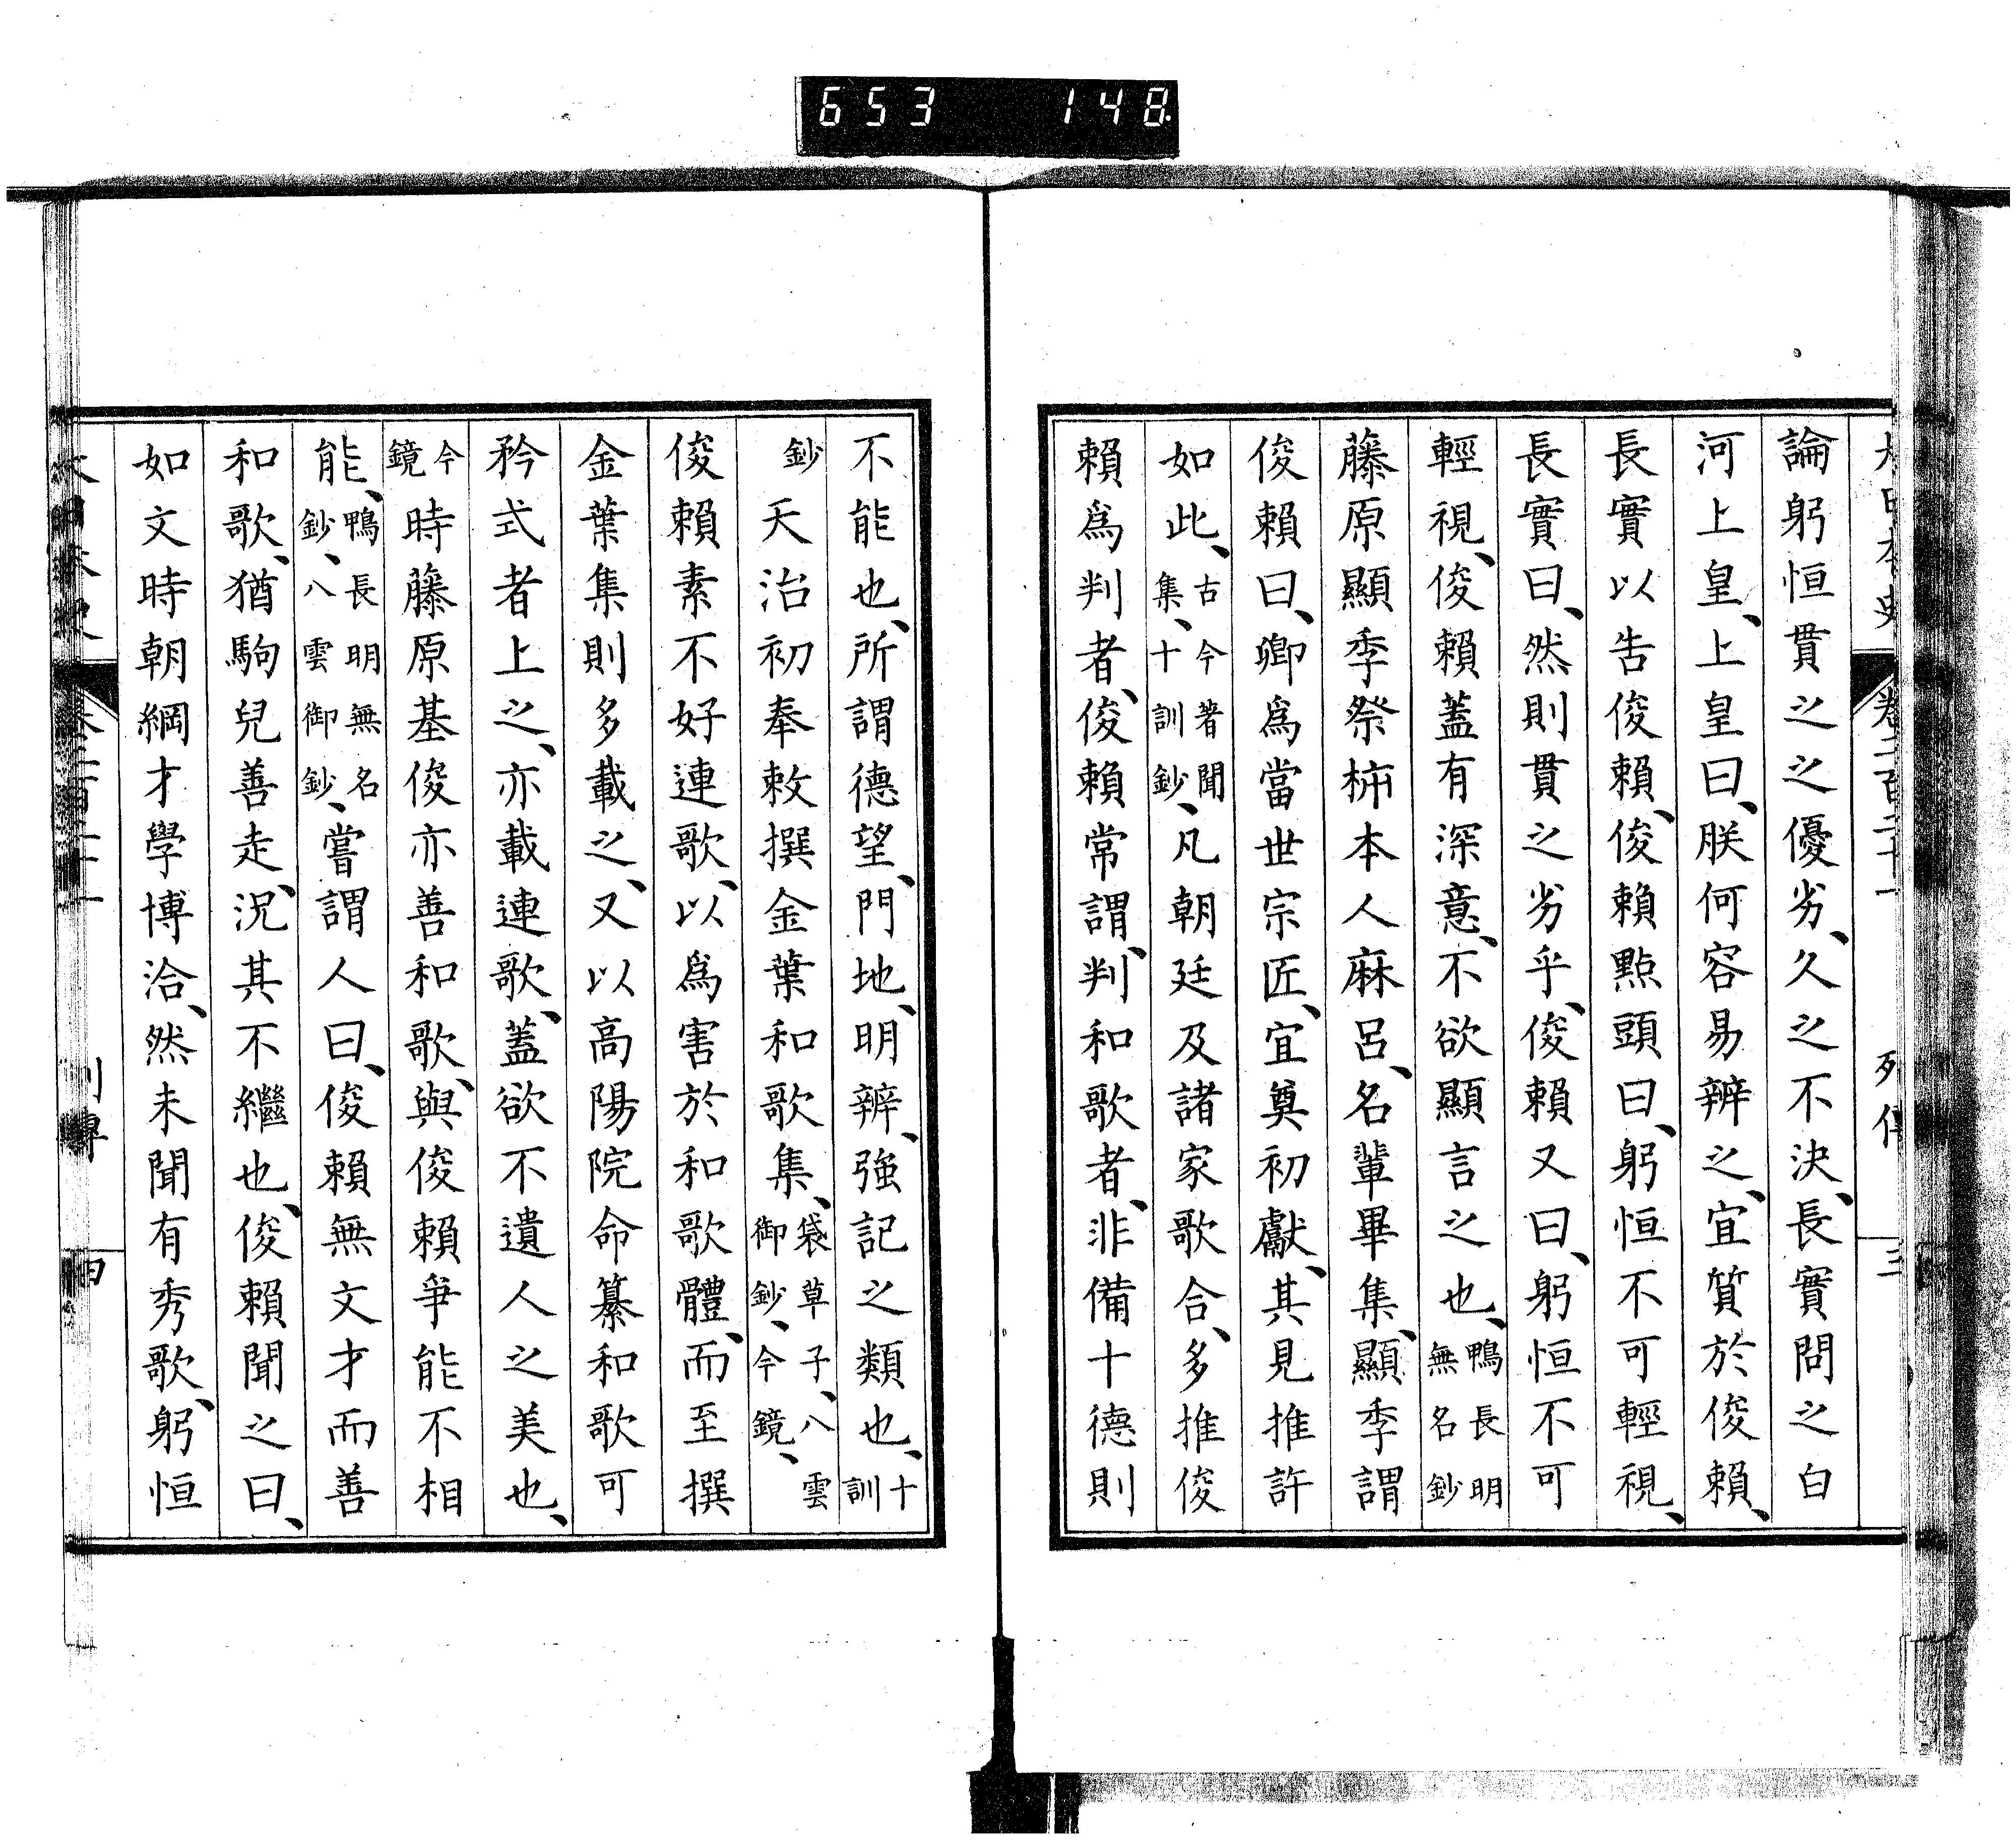 653 148
論躬恒貫之之優劣、久之不決、長實問之白
河上皇、上皇曰、朕何容易辨之、宜質於俊賴、
長實以告俊賴、俊賴點頭曰、躬恒不可輕視、
長實曰、然則貫之劣乎、俊賴又曰、躬恒不可
輕視、俊賴蓋有深意、不欲顯言之也、鴨長明無名鈔
藤原顯季祭柿本人麻呂、名輩畢集、顯季謂
俊賴曰、卿爲當世宗匠、宜奠初獻、其見推許
如此、古今著聞集、十訓鈔、凡朝廷及諸家歌合、多推俊
賴爲判者、俊賴常謂、判和歌者、非備十德則
不能也、所謂德望、門地、明辨、強記之類也、十訓
鈔天治初奉敕撰金葉和歌集、袋草子、八雲御鈔、今鏡、
俊賴素不好連歌、以爲害於和歌體、而至撰
金葉集則多載之、又以高陽院命纂和歌可
矜式者上之、亦載連歌、蓋欲不遺人之美也、
今鏡時藤原基俊亦善和歌、與俊賴爭能不相
能、鴨長明無名鈔、八雲御鈔、嘗謂人曰、俊賴無文才而善
和歌、猶駒兒善走、況其不繼也、俊賴聞之曰、
如文時朝綱才學博洽、然未聞有秀歌、躬恒